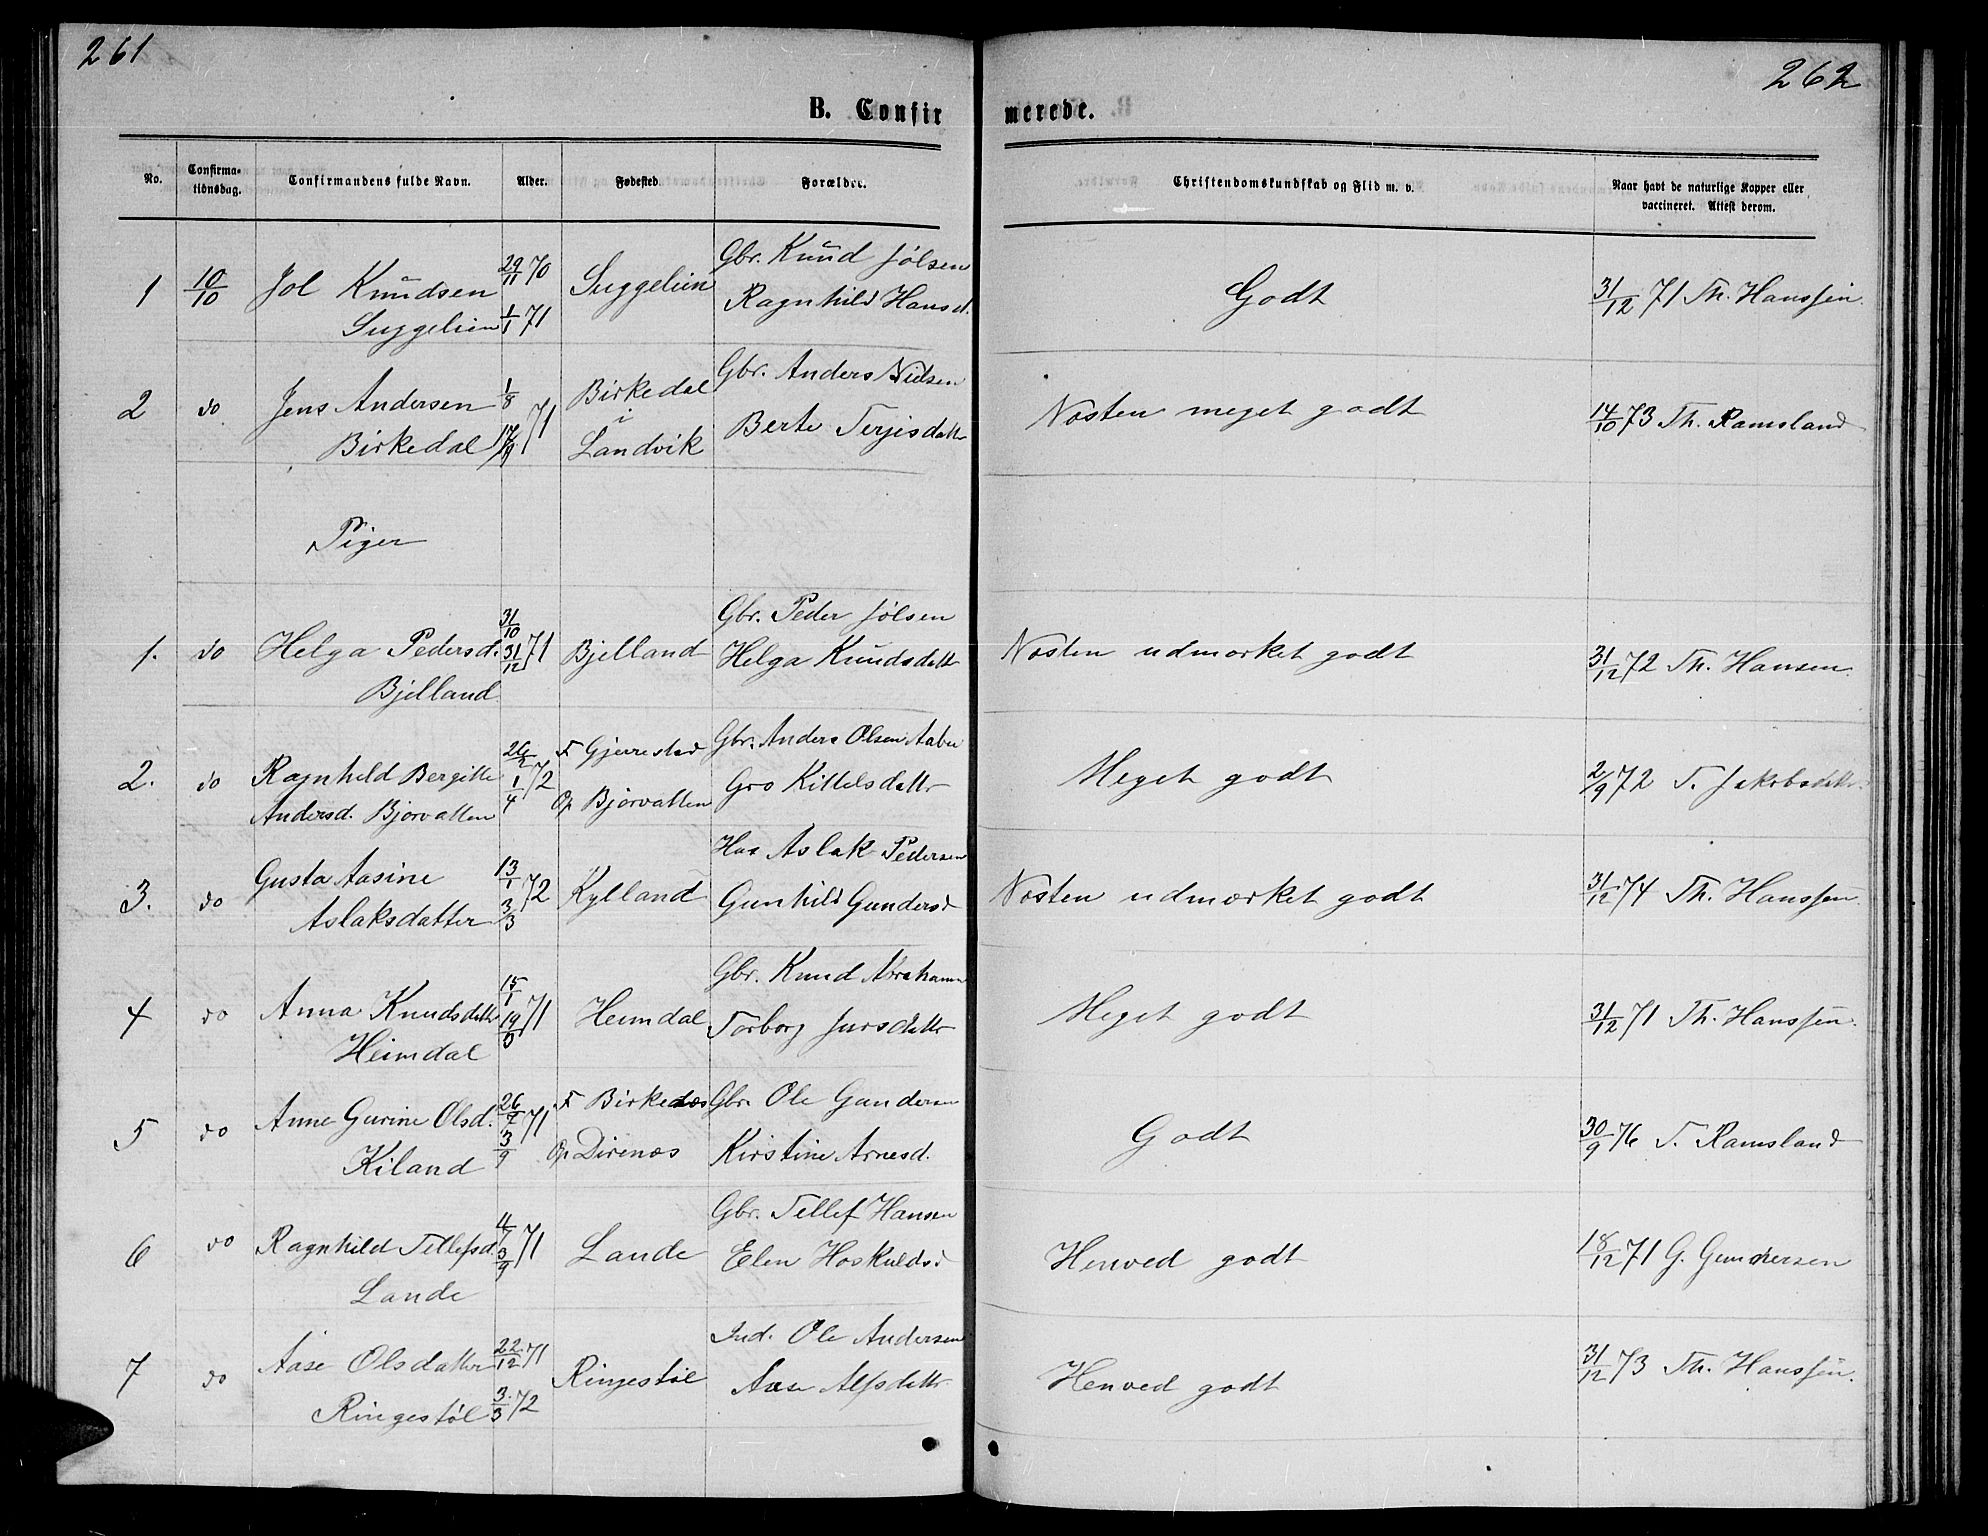 261
262
B. Confirmerede.
No.
Confirmationsdag.
Confirmandens fulde Navn.
Alder.
Fødested
Forældre.
Christendomskundskab og Flid m. v.
Naar havt de naturlige Kopper eller vaccineret. Attest derom.
1 10/10 Jol Knudsen Suggelien 29/11 70 1/1 71 Suggelien Gbr. Knud Jølsen Ragnhild Hansd. Godt 31/12 71 Th. Hanssen
2 do Jens Andersen Birkedal 1/8 17/9 71 Birkedal i Landvik Gbr. Anders Nilsen Berte Terjesdattr Næsten meget godt 14/10 73 Th. Ramsland
Piger
1. do Helga Pedersd. Bjelland 31/10 31/12 71 Bjelland Gbr. Peder Jølsen Helga Knudsdattr Næsten udmærket godt 31/12 72 Th. Hansen.
2. do Ragnhild Bergitte Andersd. Bjorvatten 26/2 1/4 72 F Gjerrestad Op Bjorvatten Gbr. Anders Olsen Aabu Gro Kittelsdattr Meget godt 2/9 72 T. Jakobsdattr
3. do Gusta Aasine Aslaksdatter 13/1 3/3 72 Kylland Hus Aslak Pedersen Gunhild Gundersd Næsten udmærket godt 31/12 74 Th. Hanssen
4 do Anna Knudsdattr Heimdal 15/1 71 Heimdal Gbr. Knud Abrahams Torborg Jursdattr Meget godt 31/12 71 Th. Hanssen.
5 do Anne Gurine Olsd. Kiland 26/7 3/9 71 F Birkenæs Op Direnæs Gbr. Ole Gundersen Kirstine Arnesd. Godt 30/9 76 T. Ramsland
6 do Ragnhild Tellefsd. Lande 4/7 3/9 71 Lande Gbr. Tellef Hansen Elen Hoskuldsd Henved godt 18/12 71 G. Gundersen
7 do Aase Olsdatter Ringestøl 22/12 71 3/3 72 Ringestøl Ind. Ole Andersen Aase Alfsdattr Henved godt 31/12 73 Th. Hanssen.